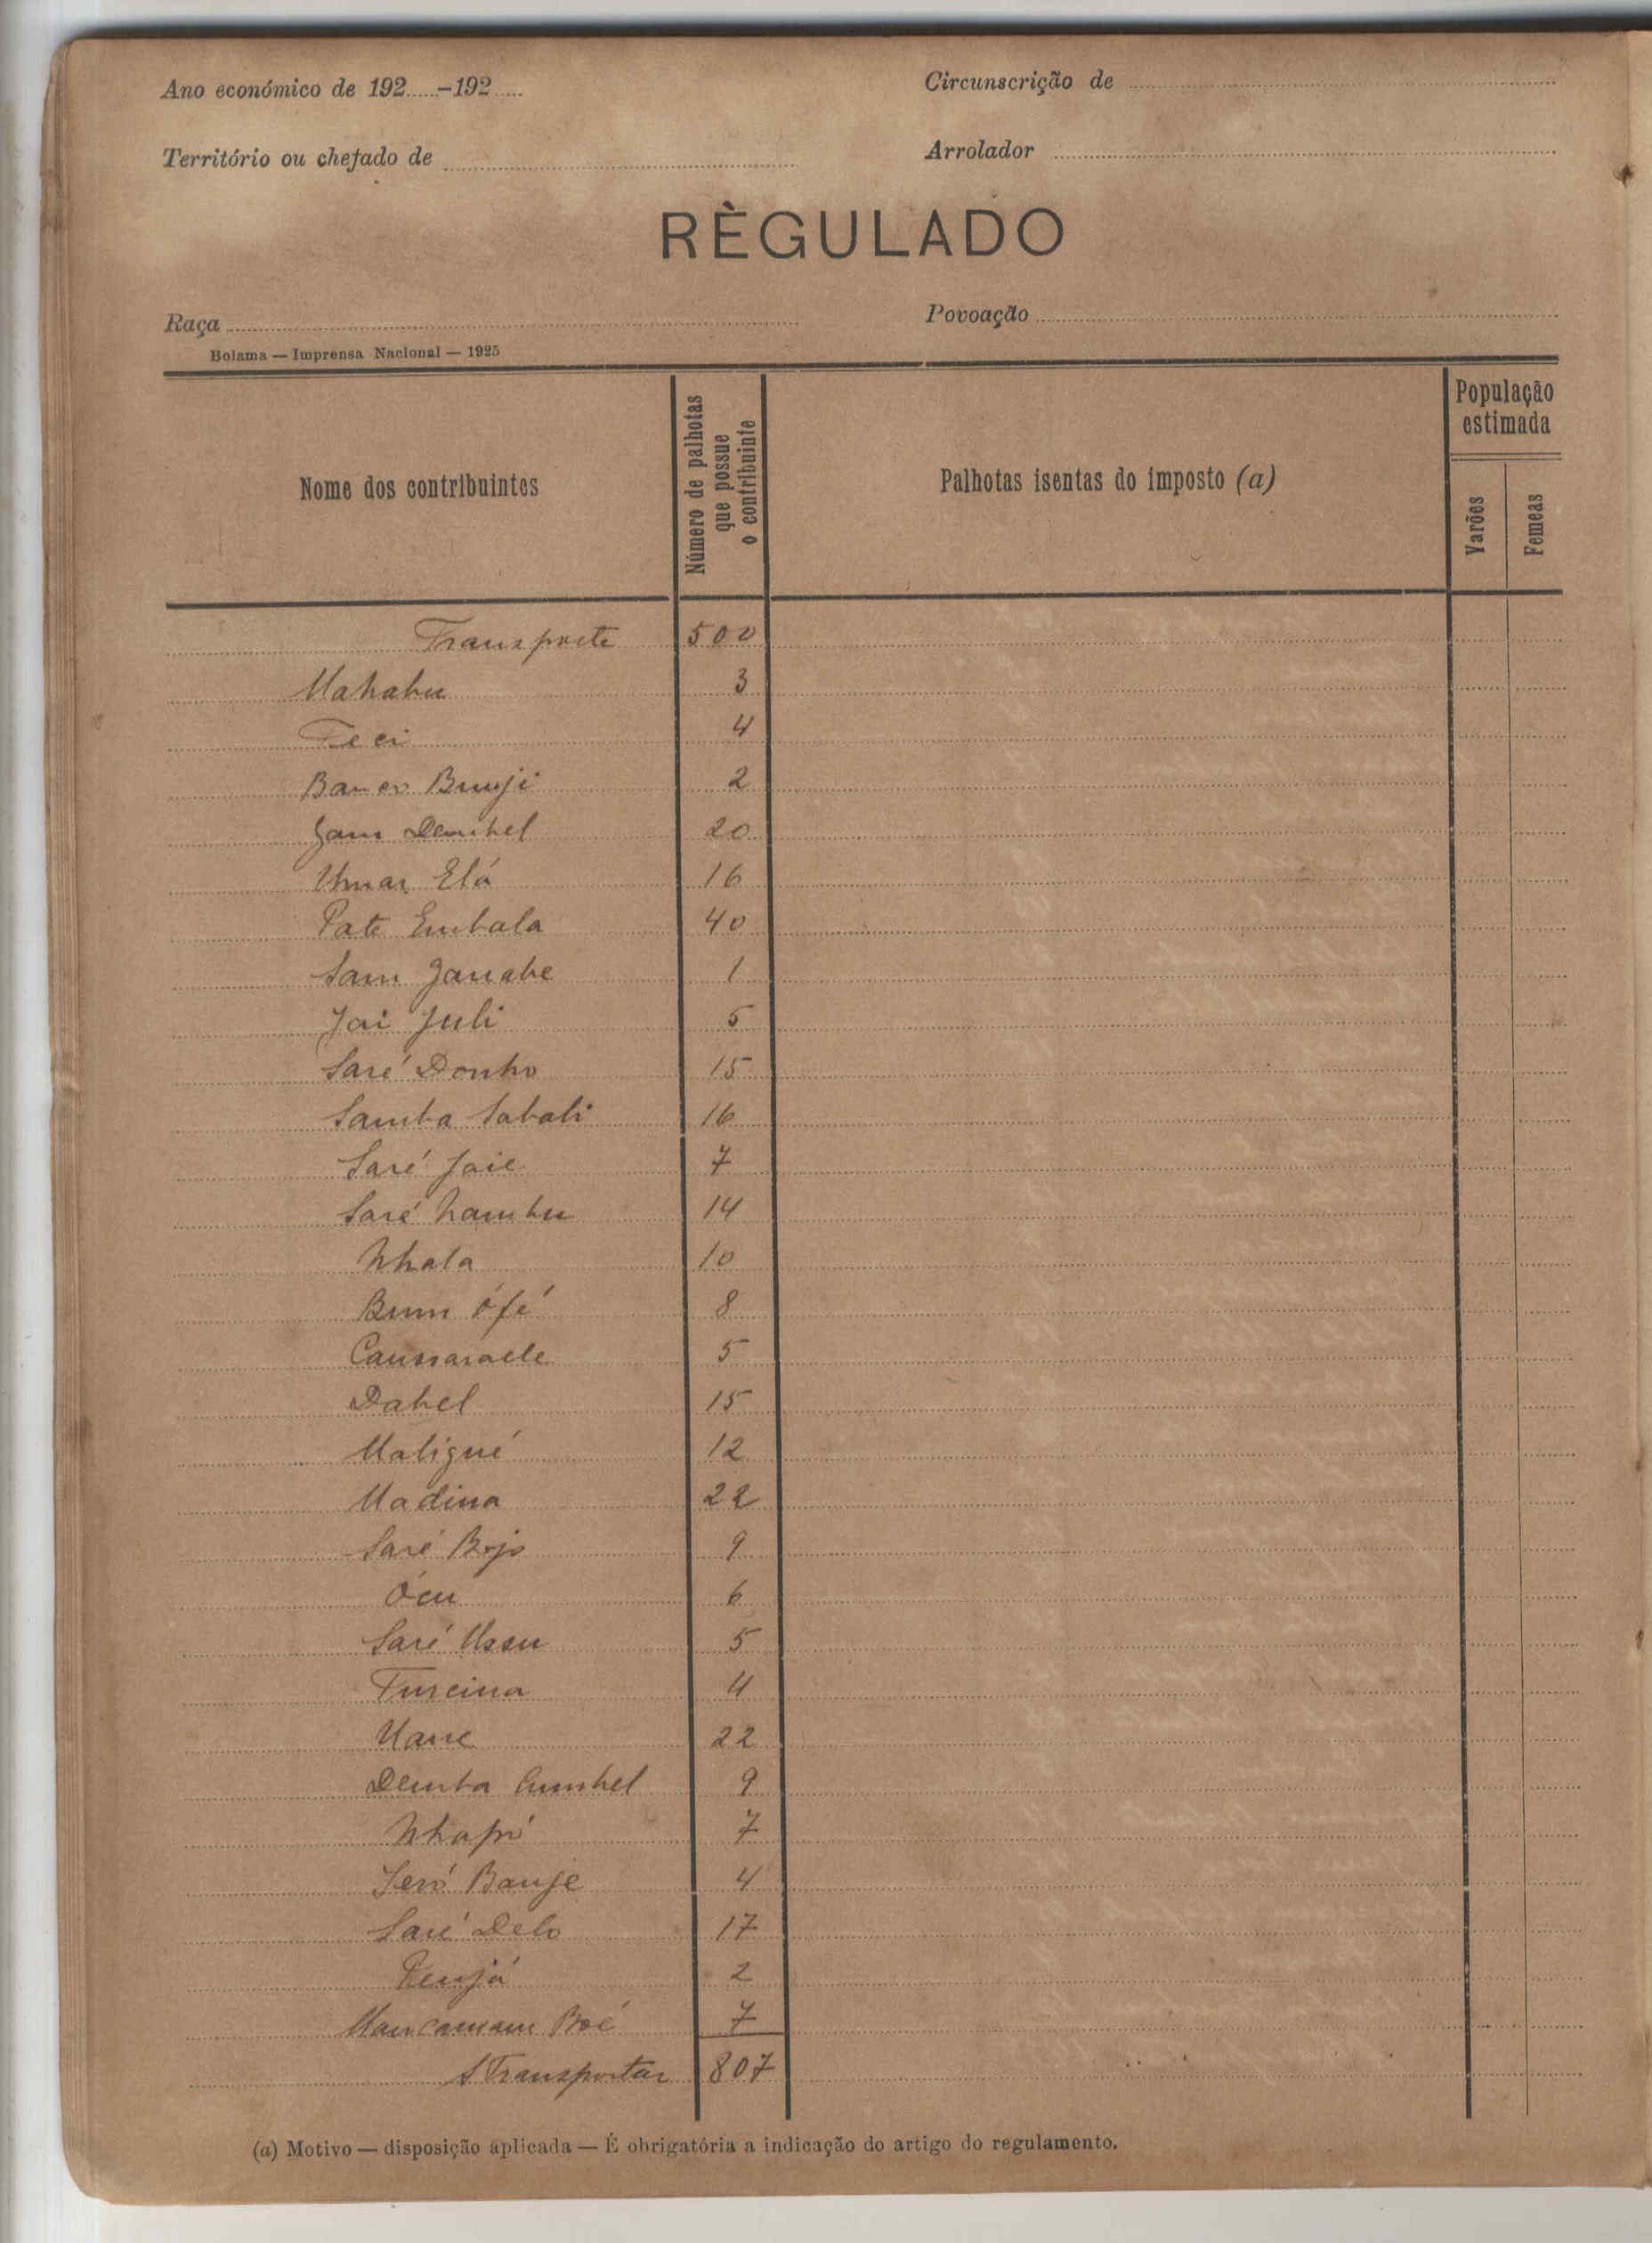 Ano económico de 192.....-192.....
Circunscrição de
Território ou chefado de
Arrolador
RÈGULADO
Raça
Povoação
Bolama — Imprensa Nacional — 1925
Nome dos contribuintes
Número de palhotas que possue o contribuinte
Palhotas isentas do imposto (a)
População estimada
Varões
Femeas
Transporte 500
Mahabu 3
Feci 4
Banco Bunji 2
Gam Dembel 20
Umar Elá 16
Pate Embala 40
Sam Janabe 1
Jai Juli 5
Saré Donho 15
Samba Sabali 16
Saré Jaie 7
Saré Nambu 14
Nhala 10
Bum Ófé 8
5
Dabel 15
Maligué 12
Madina 22
Saré Bojo 9
Ócu 6
Saré Ussu 5
Turcina 4
Uane 22
Demba Cumbel 9
Nhapó 7
Banje 4
Saré Delo 17
Penjá 2
Boé 7
A Transportar 807
(a) Motivo — disposição aplicada — É obrigatória a indicação do artigo do regulamento.